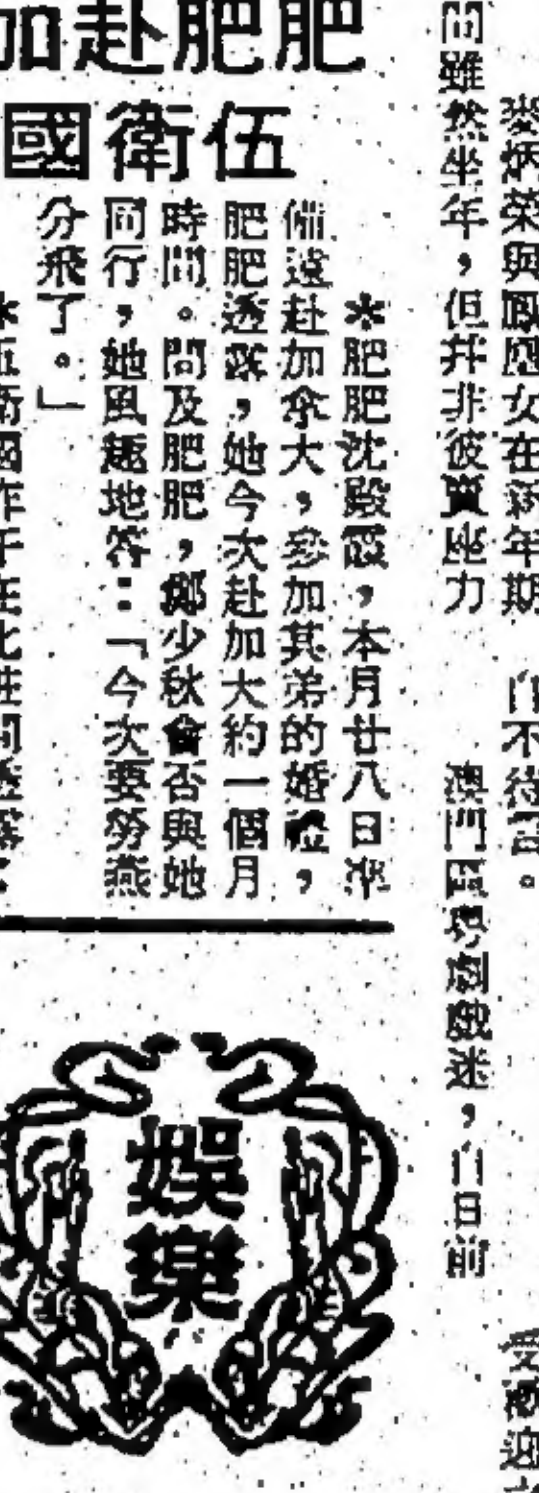 加赴肥肥
國衛伍
＊肥肥沈殿霞，本月廿八日準
備遠赴加拿大，參加其弟的婚禮，
肥肥透露，她今次赴加大約一個月
時間。問及肥肥，鄭少秋會否與她
同行，她風趣地答：「今次要勞燕
分飛了。」
娛樂
麥炳榮與鳳凰女在新年期
間雖然坐年，但并非彼賣座力
自不待言。
澳門區粵劇戲迷，自日前
受歡迎